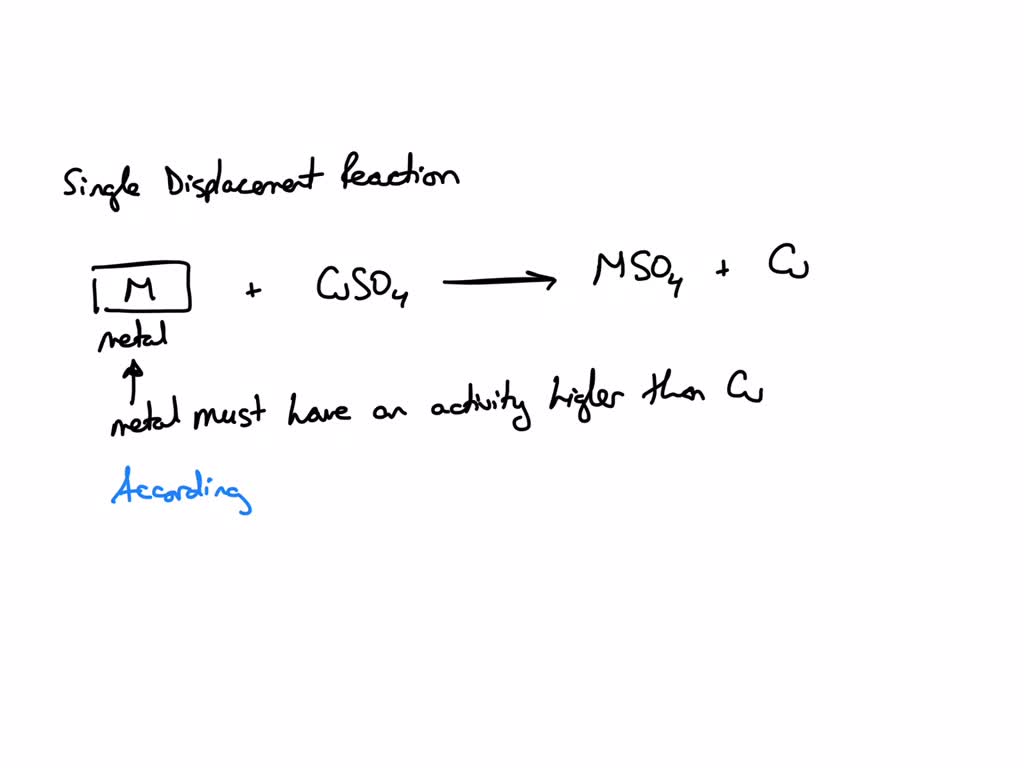 Single Displacement Reaction
M + CuSO₄ → MSO₄ + Cu
metal
↑
metal must have an activity higher than Cu
According